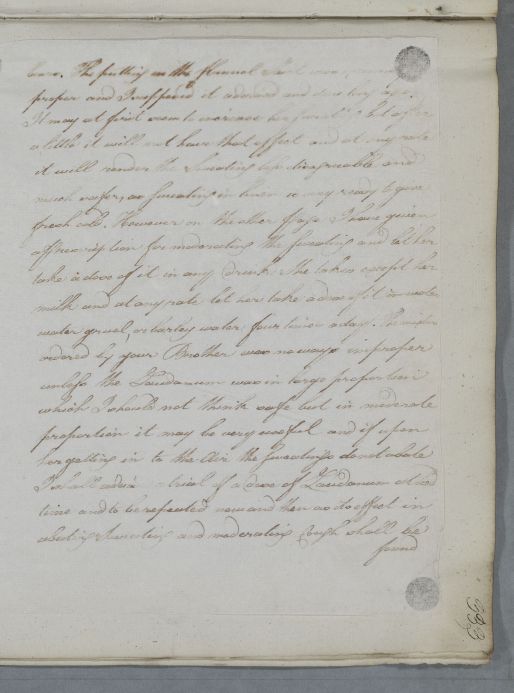 here. The putting on the flannel shirt was
proper and I suppose it
It may at first seem to increase her sweats but after
a little it will not have that effect and at any rate
it will render the Sweating less disagreeable and
much safer, as sweating in linen is very ready to give
fresh cold. However on the other Page I have given
a prescription for moderating the Sweating and let her
take a dose of it in any drink She takes except her
milk and at any rate let her take a dose of it in water
water gruel, or barley water four times a day. The
ordered by your Brother was no ways improper
unless the Laudanum was in large proportion
which I should not think safe but in moderate
proportion it may be very useful and if upon
her getting in to the Air the Sweatings do not abate
I shall advise a trial of a dose of Laudanum at bed
time and to be repeated now and then as its effect in
abating Sweating and moderating Cough shall be
found